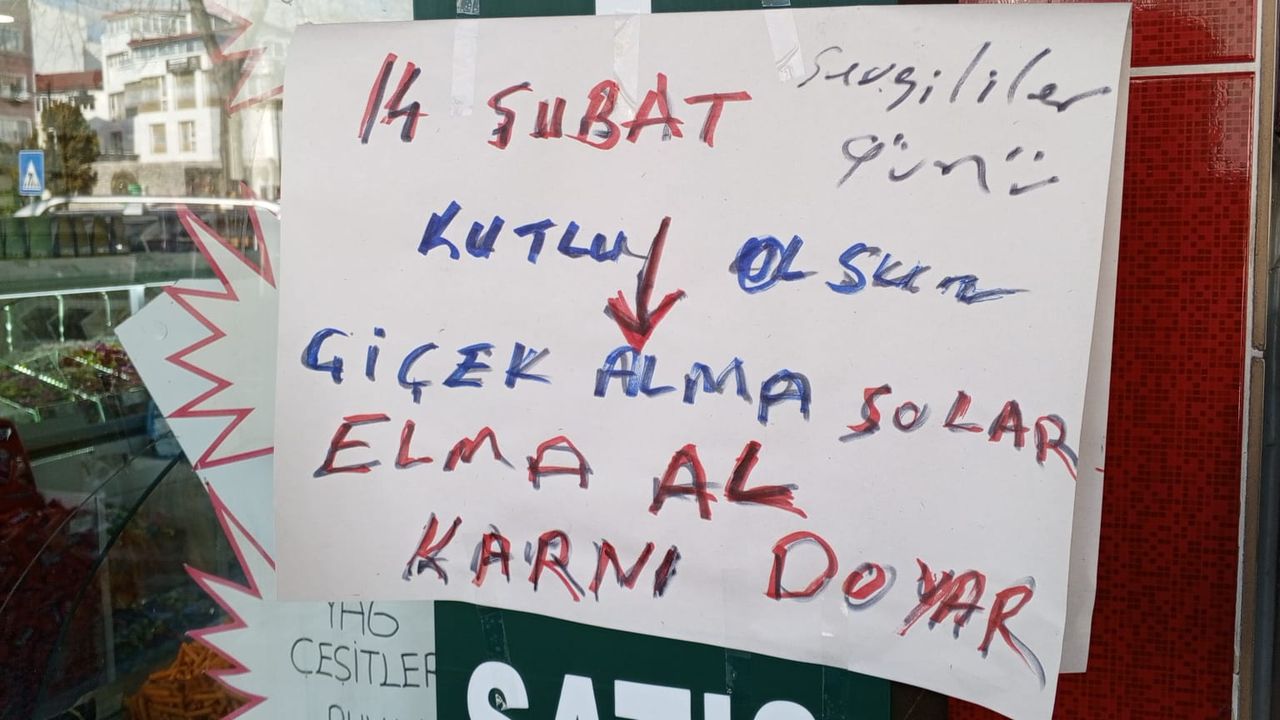 14 ŞUBAT Sevgililer
Günü
KUTLU OLSUN
GİÇEK ALMA SOLAR
ELMA AL
KARNI DOYAR
YAĞ
ÇEŞİTLER
SATIŞ